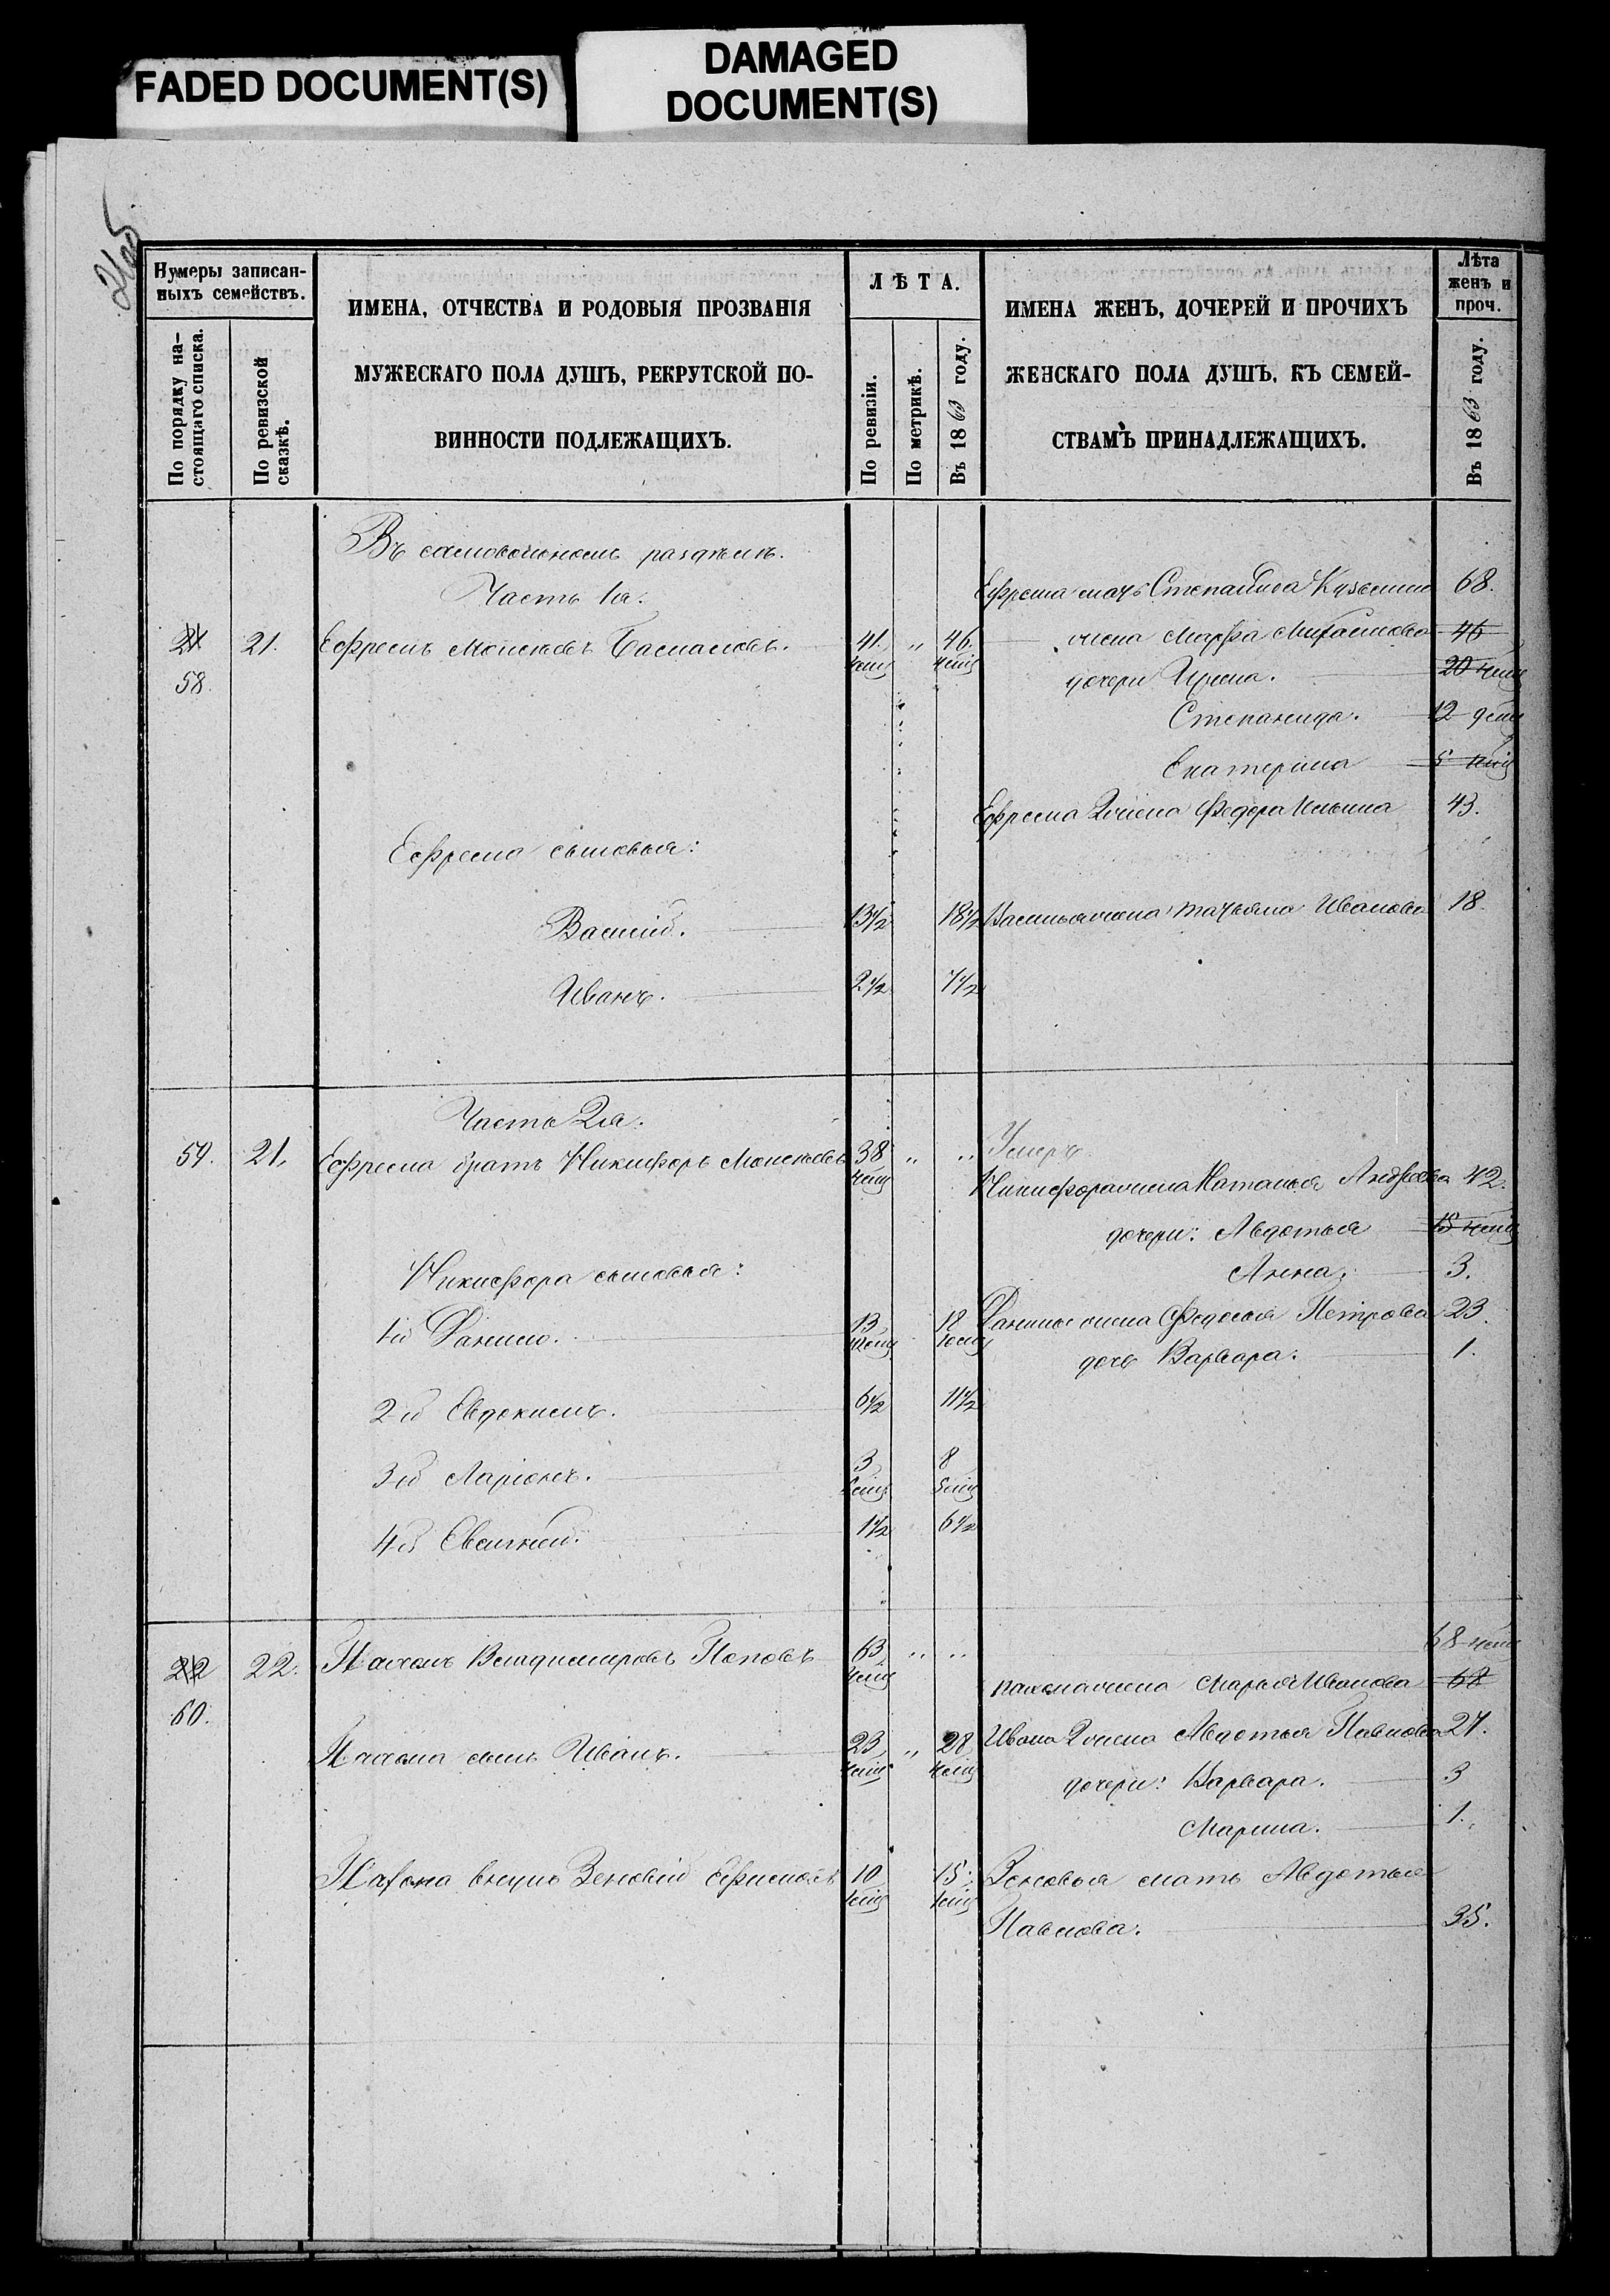 FADED DOCUMENT(S)
DAMAGED
DOCUMENT(S)
265
Нумеры записан-
ныхъ семействъ.
По порядку на-
стоящаго списка.
По ревизской
сказкѣ.
ИМЕНА, ОТЧЕСТВА И РОДОВЫЯ ПРОЗВАНІЯ
МУЖЕСКАГО ПОЛА ДУШЪ, РЕКРУТСКОЙ ПО-
ВИННОСТИ ПОДЛЕЖАЩИХЪ.
ЛѢТА.
По ревизіи.
По метрикѣ.
Въ 1863 году.
ИМЕНА ЖЕНЪ, ДОЧЕРЕЙ И ПРОЧИХЪ
ЖЕНСКАГО ПОЛА ДУШЪ, КЪ СЕМЕЙ-
СТВАМЪ ПРИНАДЛЕЖАЩИХЪ.
Лѣта
женъ и
проч.
Въ 1863 году.
Въ самовольномъ раздѣлѣ.
Часть 1я.
Ефрема мать Степанида Кузьмина 68.
21 21. Ефремъ Моисѣевъ Басмановъ. 41. " 46. жена Марфа Михайлова 46
58.
дочери Ирина. 20
Степанида. 12
Екатерина 5
Ефрема 2 жена Федора Ильина 43.
Ефрема сыновья:
Василій. 13½ 18½ Василья жена Татьяна Иванова 18.
Иванъ. 2½ 7½
Часть 2я.
59. 21. Ефрема братъ Никифоръ Моисѣевъ 38 " " Умеръ
Никифора жена Наталья Андреева 42.
дочери: Авдотья 15
Никифора сыновья:
Анна. 3.
1й Данило. 13 18 Данилы жена Федосья Петрова 23.
дочь Варвара. 1.
2й Евдокимъ. 6½ 11½
3й Ларіонъ. 3 8
4й Евсигней. 1½ 6½
22 22. Пахомъ Владимировъ Поповъ 63 " " 68
60.
Пахома жена Марья Иванова 68
Пахома сынъ Иванъ. 23 " 28 Ивана 2 жена Авдотья Павлова 27.
дочери: Варвара. 3
Марина. 1.
Пахома внукъ Зеновій Ефимовъ 10 15 Зеновья мать Авдотья
Павлова. 35.